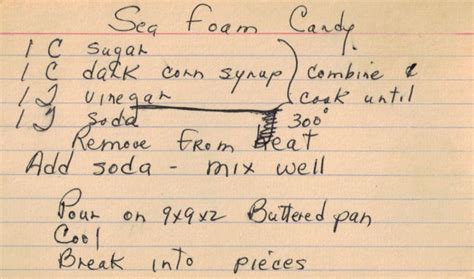 Sea Foam Candy
1 C sugar
1 C dark corn syrap } combine &
1 T vinegar cook until
1 T soda 300°
Remove From heat
Add soda - mix well
Pour on 9x9x2 Buttered pan
Cool
Break into pieces